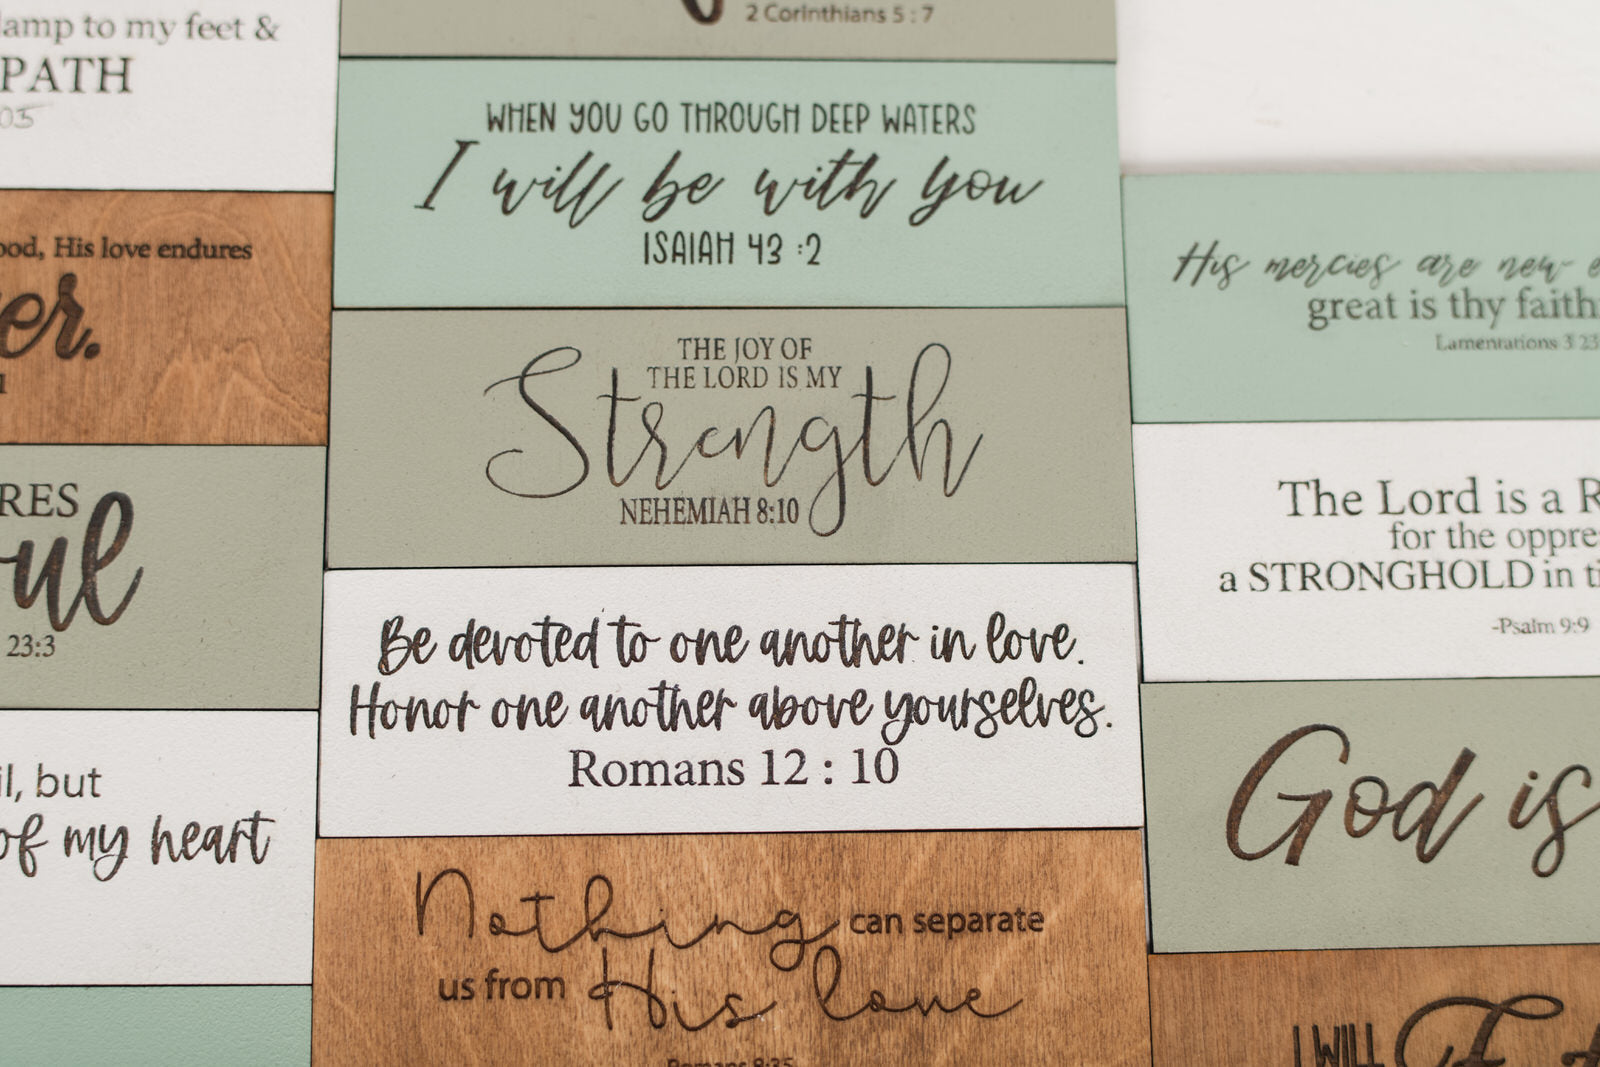 lamp to my feet &
PATH
05
ood, His love endures
er.
1
RES
ul
23:3
il, but
of my heart
2 Corinthians 5:7
WHEN YOU GO THROUGH DEEP WATERS
I will be with you
ISAIAH 43 :2
THE JOY OF
THE LORD IS MY
Strength
NEHEMIAH 8:10
Be devoted to one another in love.
Honor one another above yourselves.
Romans 12 : 10
Nothing can separate
us from His love
Romans 8:35
His mercies are new e
great is thy faith
Lamentations 3 23
The Lord is a R
for the oppre
a STRONGHOLD in ti
-Psalm 9:9
God is
I WILL